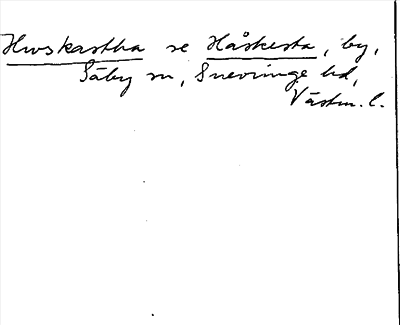 Hwskastha se Håskesta, by,
Säby sn, Snevringe hd,
Västm. l.